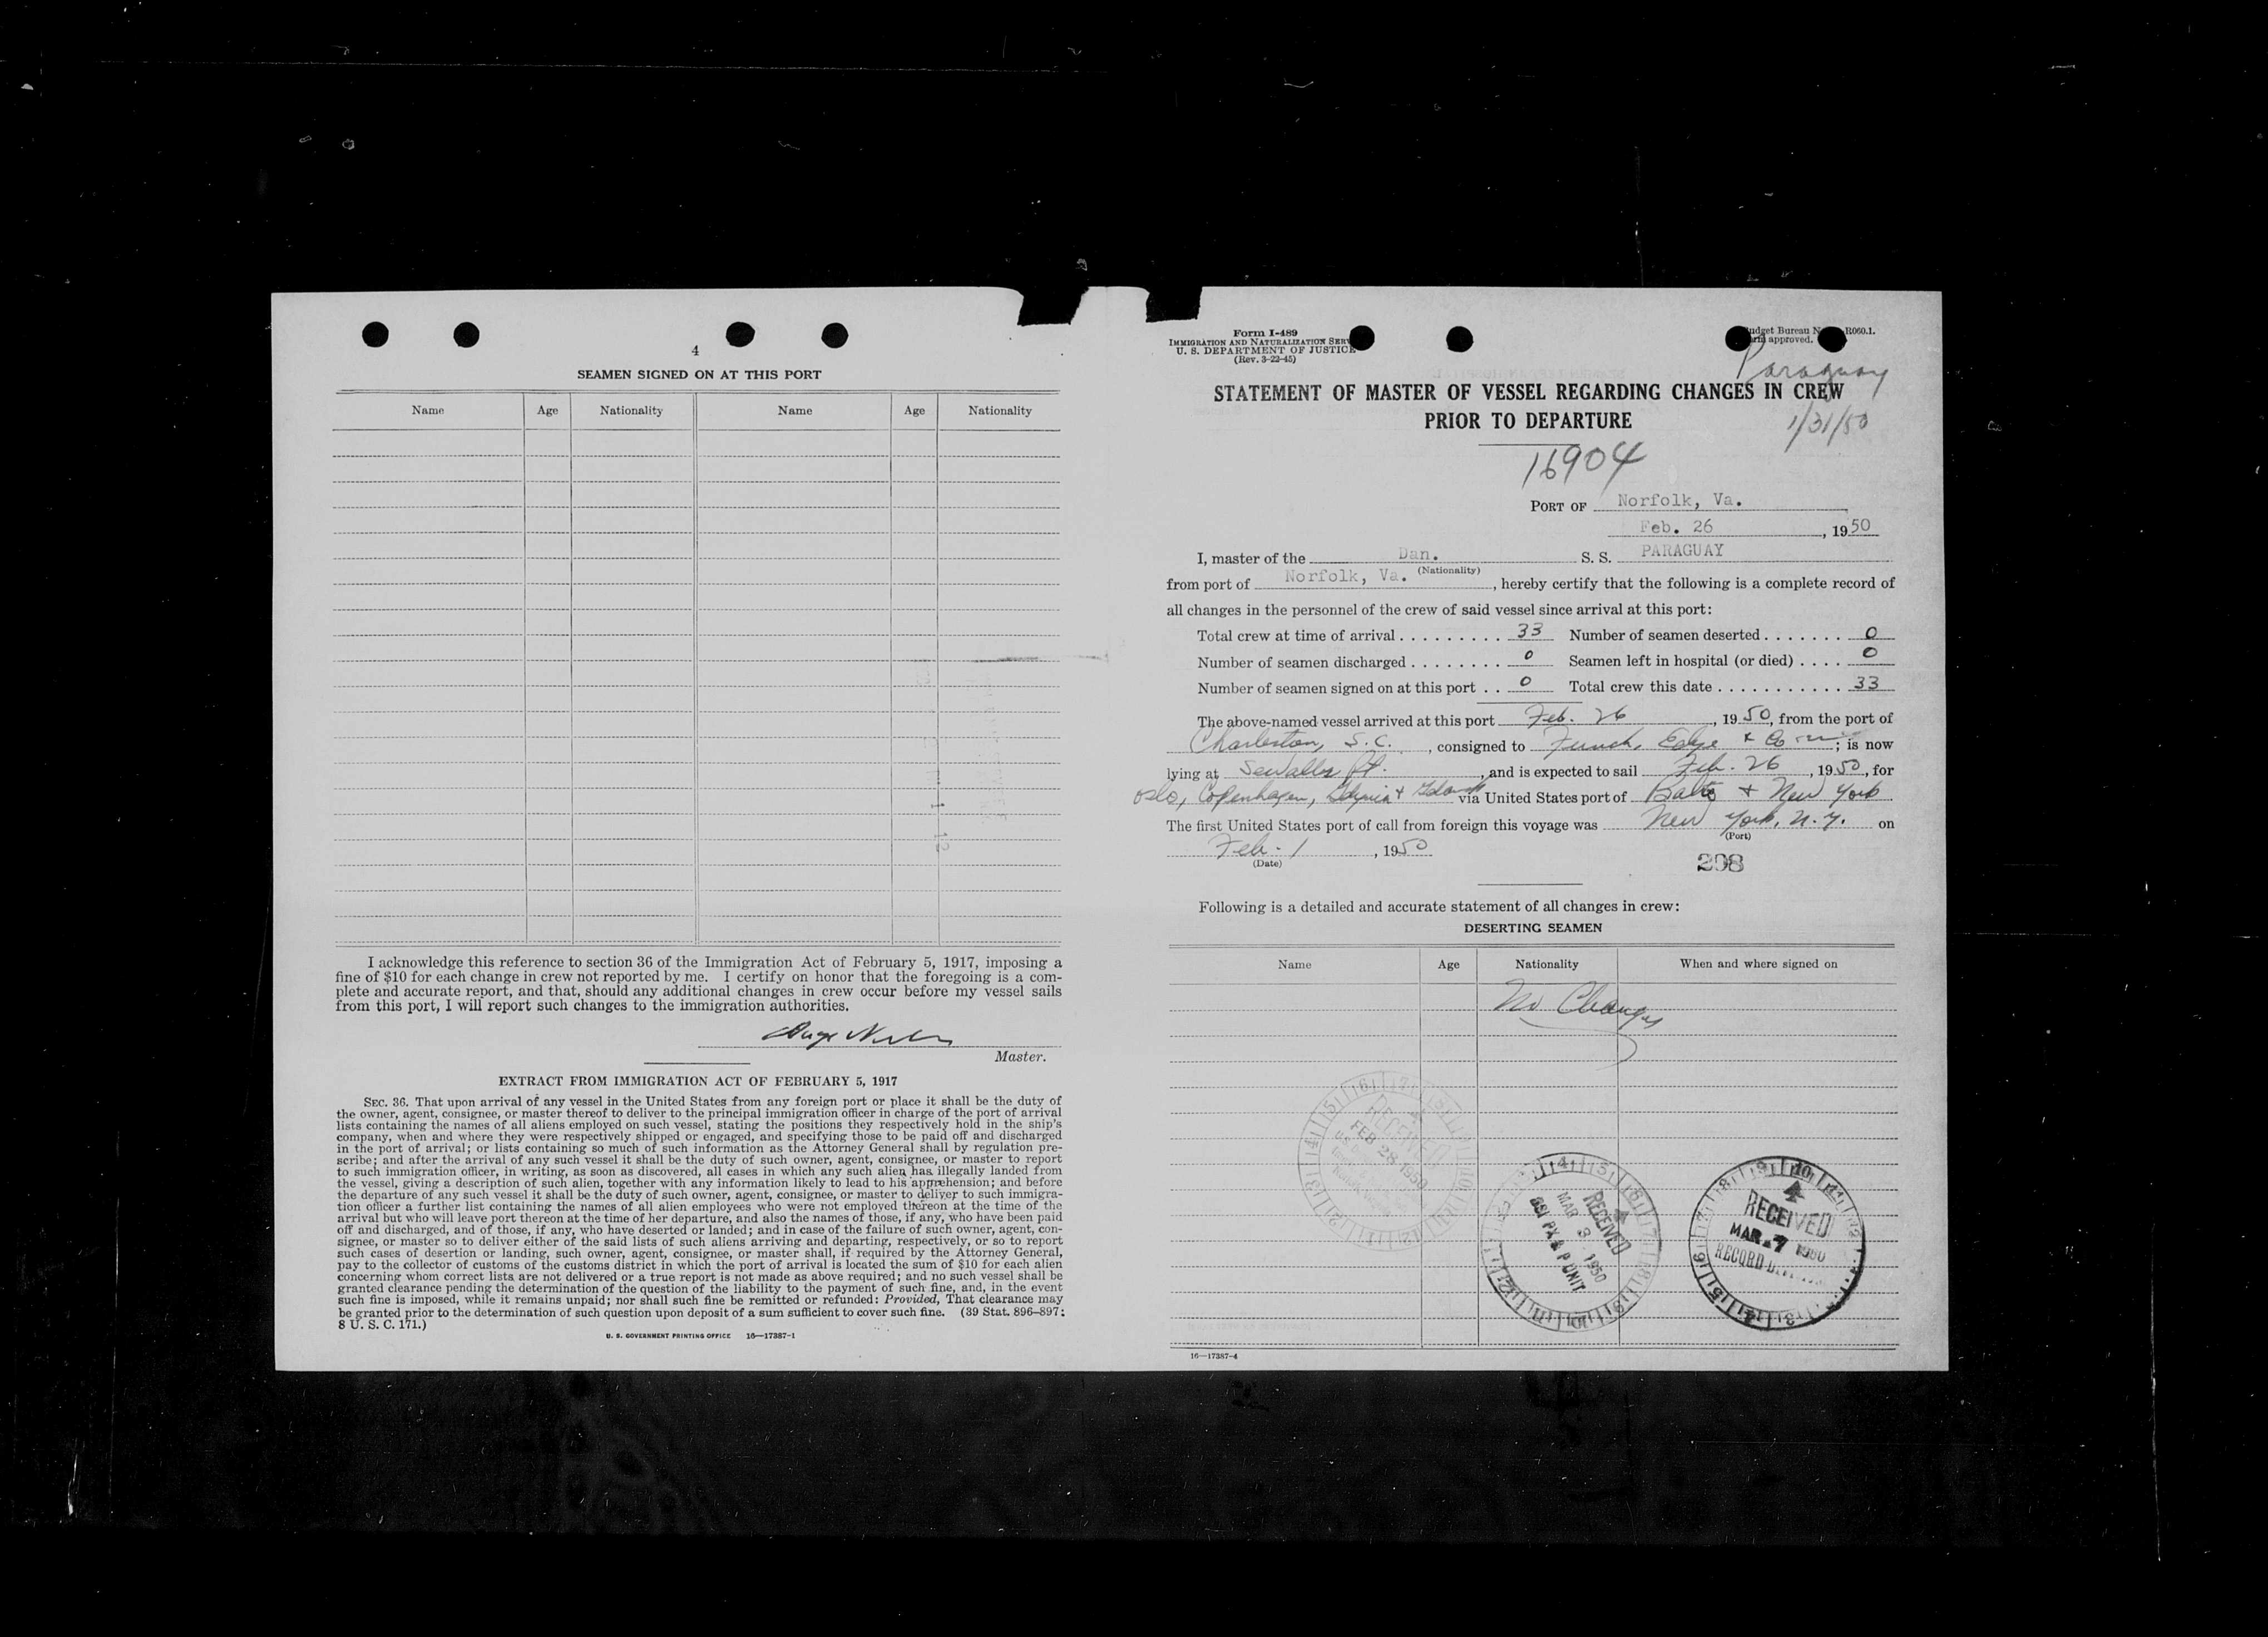 4
SEAMEN SIGNED ON AT THIS PORT
Name Age Nationality Name Age Nationality
I acknowledge this reference to section 36 of the Immigration Act of February 5, 1917, imposing a
fine of $10 for each change in crew not reported by me. I certify on honor that the foregoing is a com-
plete and accurate report, and that, should any additional changes in crew occur before my vessel sails
from this port, I will report such changes to the immigration authorities.
Master.
EXTRACT FROM IMMIGRATION ACT OF FEBRUARY 5, 1917
SEC. 36. That upon arrival of any vessel in the United States from any foreign port or place it shall be the duty of
the owner, agent, consignee, or master thereof to deliver to the principal immigration officer in charge of the port of arrival
lists containing the names of all aliens employed on such vessel, stating the positions they respectively hold in the ship's
company, when and where they were respectively shipped or engaged, and specifying those to be paid off and discharged
in the port of arrival; or lists containing so much of such information as the Attorney General shall by regulation pre-
scribe; and after the arrival of any such vessel it shall be the duty of such owner, agent, consignee, or master to report
to such immigration officer, in writing, as soon as discovered, all cases in which any such alien has illegally landed from
the vessel, giving a description of such alien, together with any information likely to lead to his apprehension; and before
the departure of any such vessel it shall be the duty of such owner, agent, consignee, or master to deliver to such immigra-
tion officer a further list containing the names of all alien employees who were not employed thereon at the time of the
arrival but who will leave port thereon at the time of her departure, and also the names of those, if any, who have been paid
off and discharged, and of those, if any, who have deserted or landed; and in case of the failure of such owner, agent, con-
signee, or master so to deliver either of the said lists of such aliens arriving and departing, respectively, or so to report
such cases of desertion or landing, such owner, agent, consignee, or master shall, if required by the Attorney General,
pay to the collector of customs of the customs district in which the port of arrival is located the sum of $10 for each alien
concerning whom correct lists are not delivered or a true report is not made as above required; and no such vessel shall be
granted clearance pending the determination of the question of the liability to the payment of such fine, and, in the event
such fine is imposed, while it remains unpaid; nor shall such fine be remitted or refunded: Provided, That clearance may
be granted prior to the determination of such question upon deposit of a sum sufficient to cover such fine. (39 Stat. 896–897;
8 U. S. C. 171.)
U. S. GOVERNMENT PRINTING OFFICE 16—17387-1
Form I-489
IMMIGRATION AND NATURALIZATION
U. S. DEPARTMENT OF JUSTICE
(Rev. 3-22-45)
Budget Bureau R060.1.
approved.
Paraguay
1/31/50
STATEMENT OF MASTER OF VESSEL REGARDING CHANGES IN CREW
PRIOR TO DEPARTURE
16904
PORT OF Norfolk, Va.
Feb. 26, 1950
I, master of the Dan. S. S. PARAGUAY
(Nationality)
from port of Norfolk, Va., hereby certify that the following is a complete record of
all changes in the personnel of the crew of said vessel since arrival at this port:
Total crew at time of arrival . . . . . . . . . 33 Number of seamen deserted . . . . . . . 0
Number of seamen discharged . . . . . . . . 0 Seamen left in hospital (or died) . . . . 0
Number of seamen signed on at this port . . 0 Total crew this date . . . . . . . . . . . 33
The above-named vessel arrived at this port Feb. 26, 1950, from the port of
Charleston, S.C., consigned to Funch, Edye & Co; is now
lying at Sewalls Pt., and is expected to sail Feb. 26, 1950, for
Oslo, Copenhagen, Gdynia + Gdansk via United States port of Balto + New York
The first United States port of call from foreign this voyage was New York, N.Y. on
(Port)
Feb. 1, 1950
(Date)
298
Following is a detailed and accurate statement of all changes in crew:
DESERTING SEAMEN
Name Age Nationality When and where signed on
No Changes
RECEIVED
FEB 28 1950
RECEIVED
MAR 3 1950
RECEIVED
MAR 7 1950
RECORD
16—17387-4